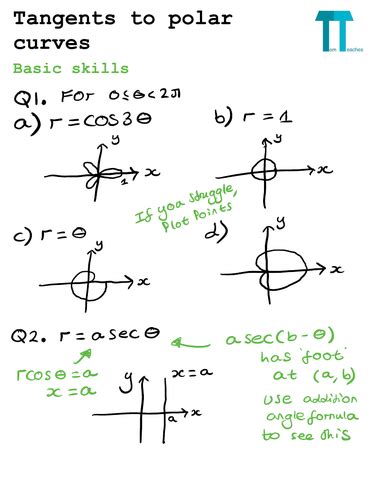 Tangents to polar
curves
Tom
Teaches
Basic skills
Q1. For 0≤θ<2π
a) r = cos3θ
b) r = 1
y
x
1
y
x
If you struggle,
Plot Points
c) r = θ
d)
y
x
y
x
Q2. r = a sec θ
a sec(b - θ)
has 'foot'
at (a, b)
use addition
angle formula
to see this
rcosθ = a
x = a
y
x = a
a
x